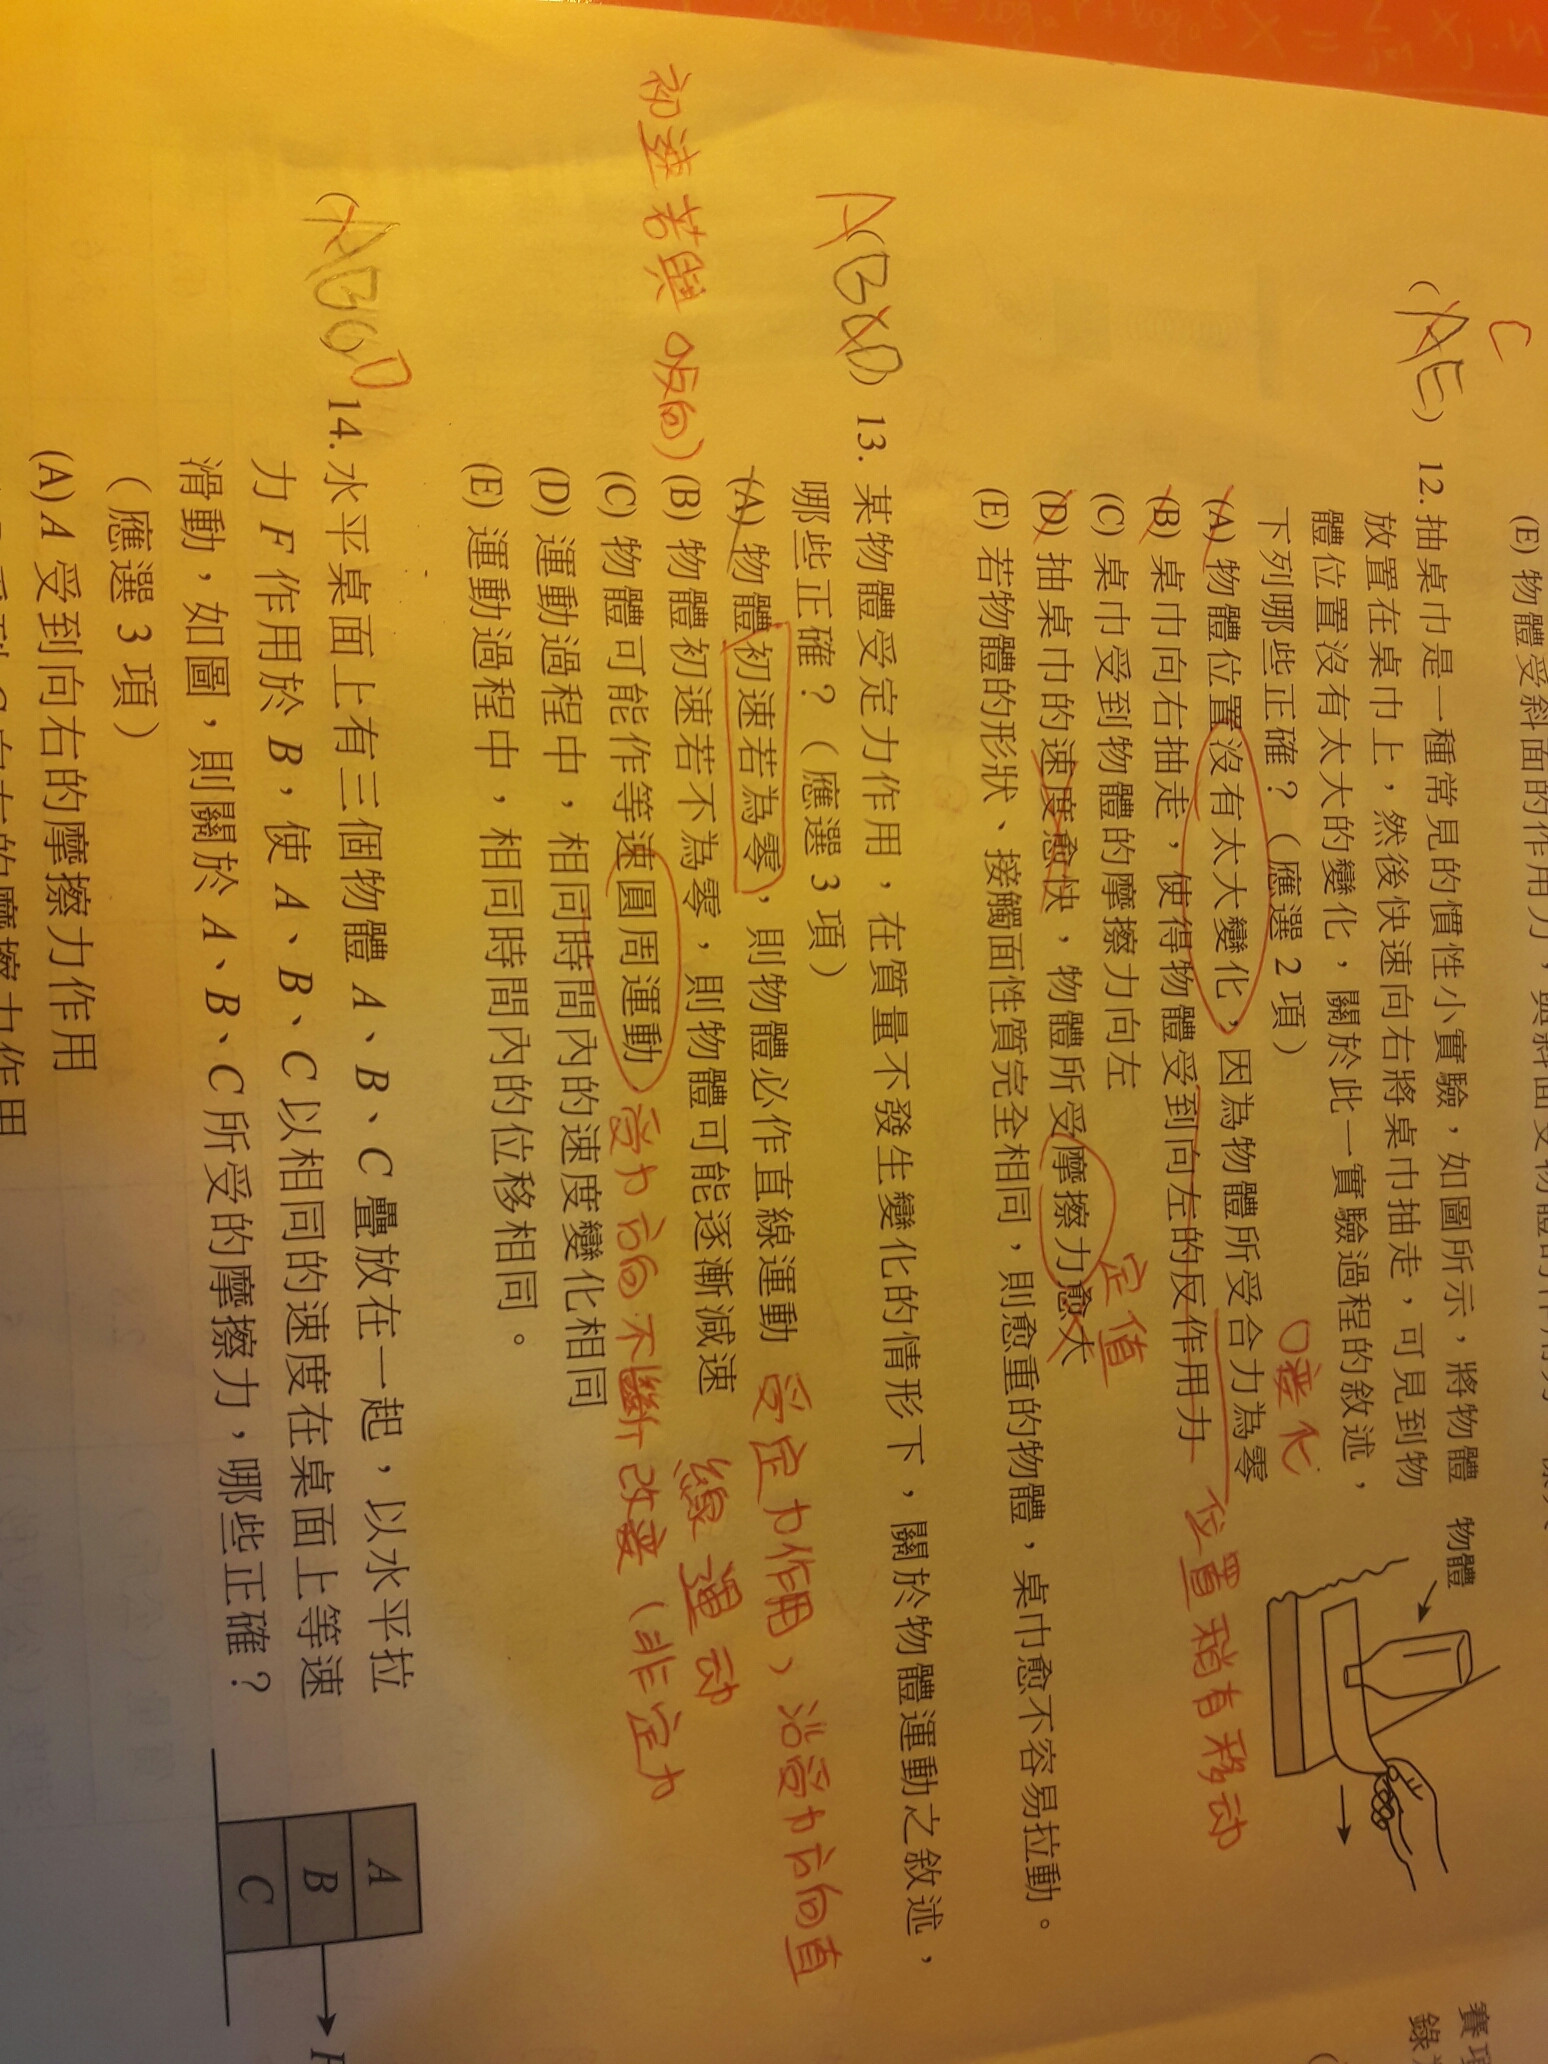 (E) 物體受斜面的作用力，與斜面受物體的作用力
C
(AE) 12. 抽桌巾是一種常見的慣性小實驗，如圖所示，將物體
放置在桌巾上，然後快速向右將桌巾抽走，可見到物
體位置沒有太大的變化，關於此一實驗過程的敘述，
下列哪些正確？（應選 2 項）
物體
(A) 物體位置沒有太大變化，因為物體所受合力為零
位置稍有移动
(B) 桌巾向右抽走，使得物體受到向左的反作用力
(C) 桌巾受到物體的摩擦力向左
定值
(D) 抽桌巾的速度愈快，物體所受摩擦力愈大
(E) 若物體的形狀、接觸面性質完全相同，則愈重的物體，桌巾愈不容易拉動。
A(BCD) 13. 某物體受定力作用，在質量不發生變化的情形下，關於物體運動之敘述，
哪些正確？（應選 3 項）
(A) 物體初速若為零，則物體必作直線運動 受定力作用，沿受力方向直
線運动
初速若與 反向
(B) 物體初速若不為零，則物體可能逐漸減速
(C) 物體可能作等速圓周運動 受力方向不斷改變（非定力
(D) 運動過程中，相同時間內的速度變化相同
(E) 運動過程中，相同時間內的位移相同。
D
14. 水平桌面上有三個物體 A、B、C 疊放在一起，以水平拉
力 F 作用於 B，使 A、B、C 以相同的速度在桌面上等速
滑動，如圖，則關於 A、B、C 所受的摩擦力，哪些正確？
（應選 3 項）
A
B
C
F
(A) A 受到向右的摩擦力作用